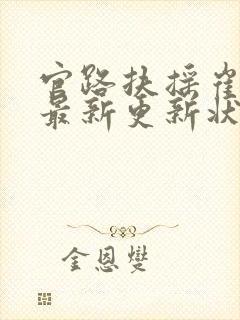 官路扶摇崔
最新更新状
金恩燮